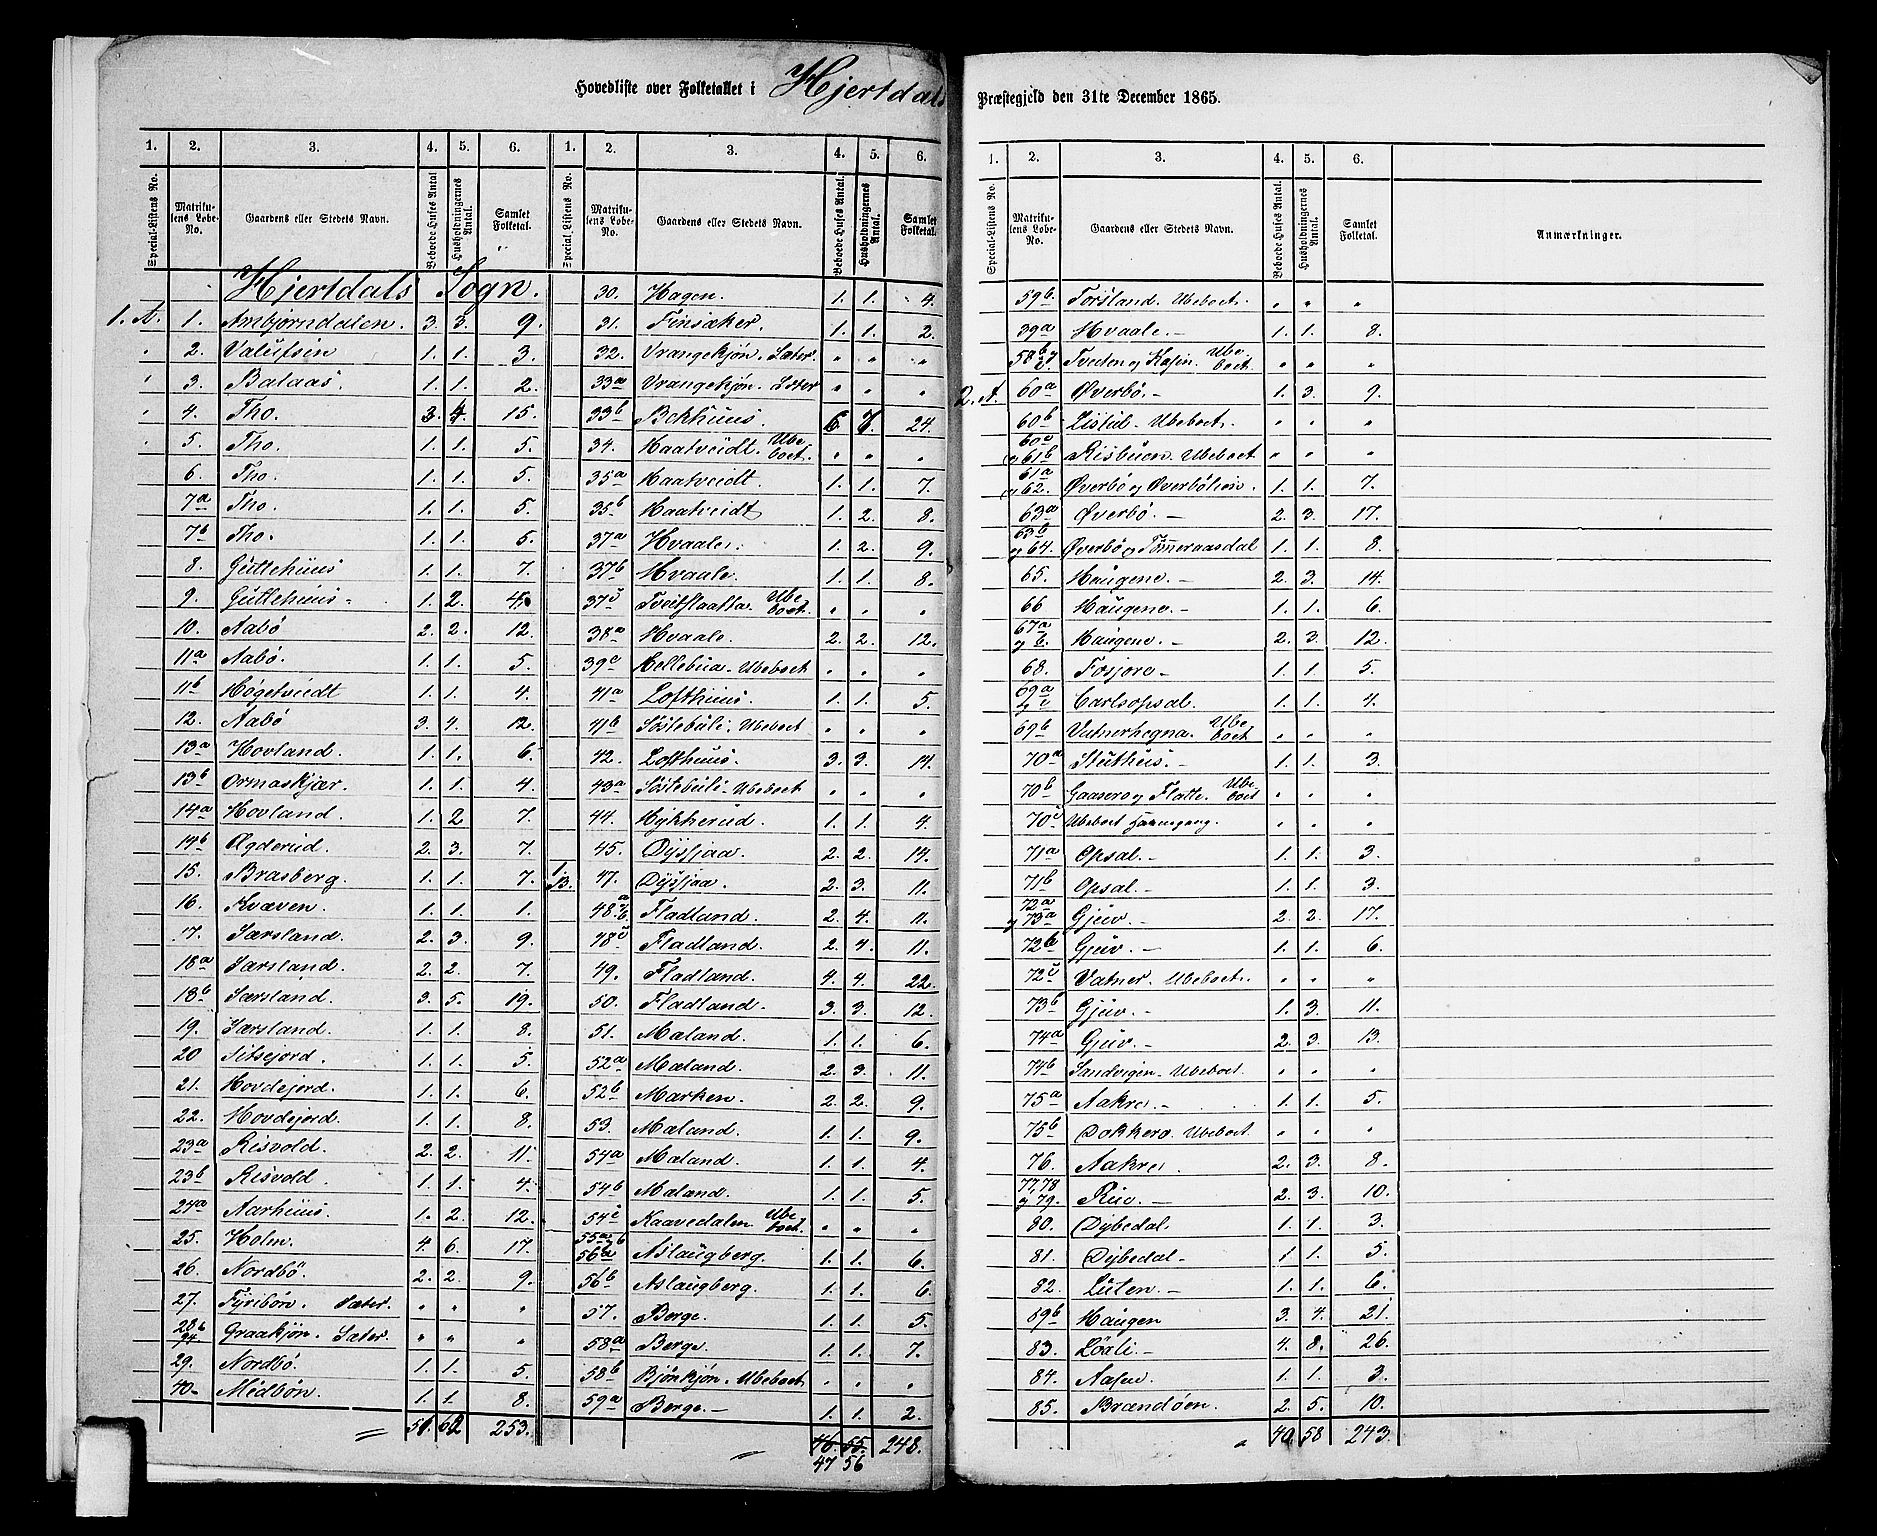 Hovedliste over Folketallet i Hjertdals
Præstegjeld den 31te December 1865.
1. 2. 3. 4. 5. 6. 1. 2. 3. 4. 5. 6.
Special-Listens No. Matrikulens Løbe-No. Gaardens eller Stedets Navn. Beboede Huses Antal Husholdningernes Antal. Samlet Folketal. Special-Listens No. Matrikulens Løbe-No. Gaardens eller Stedets Navn. Beboede Huses Antal. Husholdningernes Antal. Samlet Folketal.
Hjertdals Sogn.
1. A. 1. Ambjørndalen. 3. 3. 9.
2. Valufsin 1. 1. 3.
3. Bakaas. 1. 1. 2.
4. Tho. 3. 4. 15.
5. Tho. 1. 1. 5.
6. Tho. 1. 1. 5.
7a Tho. 1. 1. 5.
7b Tho. 1. 1. 5.
8. Guttehuus 1. 1. 7.
9. Guttehuus- 1. 2. 4.
10. Aabö 2. 2. 12.
11a Aabö. 1. 1. 5.
11b Høgetveidt 1. 1. 4.
12. Aabö 3. 4. 12.
13a Hovland. 1. 1. 6.
13b Ormaskjær. 1. 1. 4.
14a Hovland. 1. 2 7.
14b Ogderud. 2. 3. 7.
15. Brasberg. 1. 1. 7.
16. Kvæven 1. 1. 1.
17. Særsland. 2. 3. 9.
18a Særsland. 2. 2. 7.
18b Særsland. 3. 5. 19.
19. Særsland. 1. 1. 8.
20 Sitsejord. 1. 1. 5.
21. Hovdejord. 1. 1. 6.
22. Hovdejord 1. 1. 8.
23a Risvold. 2. 2. 11.
23b Risvold. 1. 1. 4.
24a Aarhuus. 1. 2. 12.
25. Holm. 4. 6. 17.
26. Nordbö. 2. 2. 9.
27. Fyribön. Sæter. " " "
28b 94 Graakjøn. Sæter. " " "
29. Nordbö. 1. 1. 5.
40- Midbön. 1. 1. 8.
51. 62 253.
30. Hagen. 1. 1. 4.
31. Finsæker. 1. 1. 2.
32. Vrangekjøn. Sæter. " " "
33a Vrangekjøn. Sæter " " "
33b Bekhuus. 6. 7. 24.
34. Haatveidt. Ubeboet. " " "
35a Haatveidt. 1. 1. 7.
35b Haatveidt 1. 2. 8.
37a Hvaale. 1. 2. 9.
37b Hvaale. 1. 1. 8.
37c Tveitflaatta Ubeboet. " " "
38a Hvaale. 2. 2. 12.
39c Hellebua. Ubeboet " " "
41a Lofthuus. 1. 1. 5.
41b Söstebuli. Ubeboet " " "
42. Lofthuus. 3. 3. 14.
43a Söstebuli- Ubeboet " " "
44. Hykkerud. 1. 1. 4.
45. Dysjaa. 2. 2. 14.
1 B. 47. Dysjaa. 2. 3. 11.
48.a&b Fladland. 2. 4. 11.
48c Fladland. 2. 4. 11.
49. Fladland. 4. 4. 22.
50. Fladland. 3. 3. 12.
51. Mæland. 1. 1. 6.
52a Mæland. 2. 3. 11.
52b Marken. 2. 2. 9.
53. Mæland. 1. 1. 9.
54a Mæland. 1. 1. 4.
54b Mæland. 1. 1. 5.
54c Kaavedalen Ubeboet. " " "
55a&b 56a Aslaugberg. 1. 1. 6.
56b Aslaugberg. 1. 1. 6
57. Berge. 1. 1. 5.
58a Berge. 1. 1. 7.
58b Bjönkjøn. Ubeboet " " "
59a Berge.- 1. 1. 2.
46. 55. 248.
47 56
1. 2. 3. 4. 5. 6.
Special-Listens No. Matrikulens Løbe-No. Gaardens eller Stedets Navn. Beboede Huses Antal. Husholdningernes Antal. Samlet Folketal. Anmærkninger.
59b Torsland. Ubeboet. " " "
39a Hvaale.- 1. 1. 8.
58b og Tveten og Kasin. Ubeboet " " "
2. A. 60a Øverbö.- 1. 3. 9.
60b Listul. Ubeboet. " " "
60c og 61b Risbuen. Ubeboet " " "
61a og 62. Øverbö og Øverbölien. 1. 1. 7.
63a Øverbö.- 2. 3. 17.
63b og 64. Øverbö og Tømmeraasdal 1. 1. 8.
65. Haugene.- 2. 3. 14.
66 Haugene.- 1. 1. 6.
67a og b. Haugene.- 2. 3. 12.
68. Fosjore- 1. 1. 5.
69a og c Carlsopsal. 1. 1. 4.
69b Vatnerhegna. Ubeboet " " "
70a Stuthus.- 1. 1. 3.
70b Gaasero og Flatte. Ubeboet " " "
70c Ubeboet Havnegang. " " "
71a Opsal.- 1. 1. 3.
71b Opsal.- 1. 1. 3.
72a og 73a Gjuv.- 2. 2. 17.
72b Gjuv.- 1. 1. 6.
72c Vatner. Ubeboet. " " "
73b Gjuv.- 1. 3. 11.
74a Gjuv.- 2. 3. 13.
74b Sandvigen- Ubeboet. " " "
75a Aakre.- 1. 1. 5.
75b Dokkero. Ubeboet. " " "
76. Aakre. 2. 3. 8.
77, 78 og 79. Ruv.- 2. 3. 10.
80. Dybedal. 1. 1. 3.
81. Dybedal- 1. 1. 5.
82. Luten.- 1. 1. 6.
89b Haugen 3. 4. 21.
83. Löili- 4. 8. 26.
84. Aasen. 1. 1. 3.
85. Brændöen. 2. 5. 10.
40. 58 243.